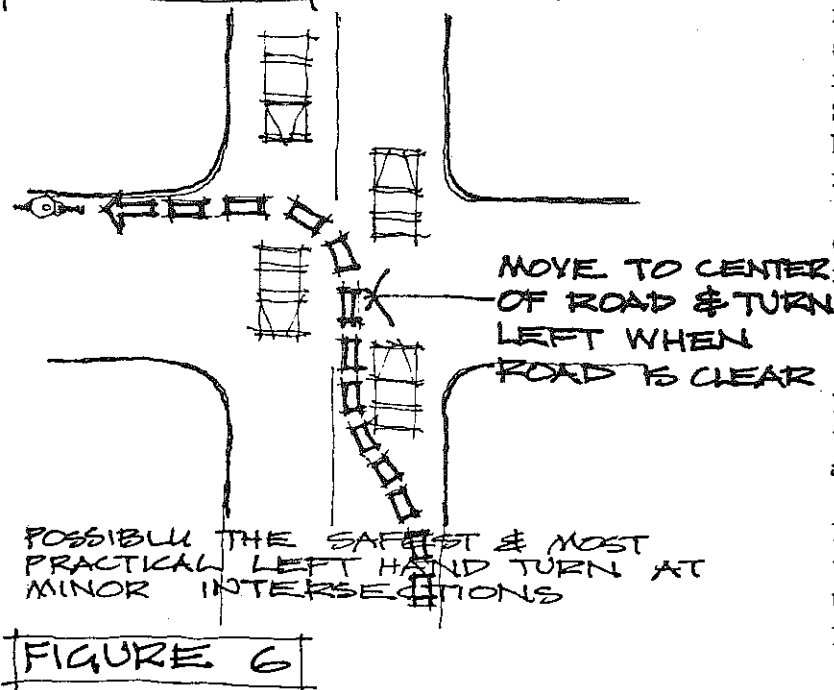 MOVE TO CENTER
OF ROAD & TURN
LEFT WHEN
ROAD IS CLEAR
POSSIBLY THE SAFEST & MOST
PRACTICAL LEFT HAND TURN AT
MINOR INTERSECTIONS
FIGURE 6